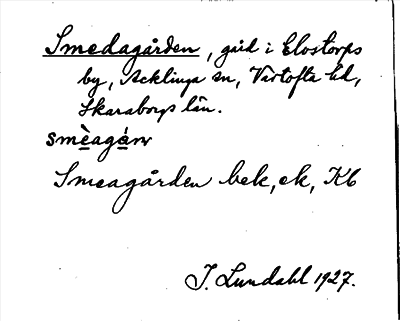 Smedagården, gård i Elostorps
by, Acklinga sn, Vartofta hd,
Skaraborgs län.
smèagánv
Smeagården bek, ek, Kb
J. Lundahl 1927.